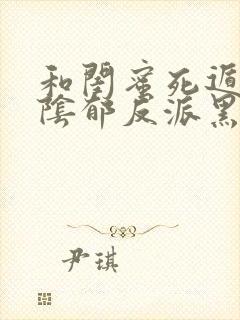 和閨蜜死遁
陰郁反派黑
尹琪